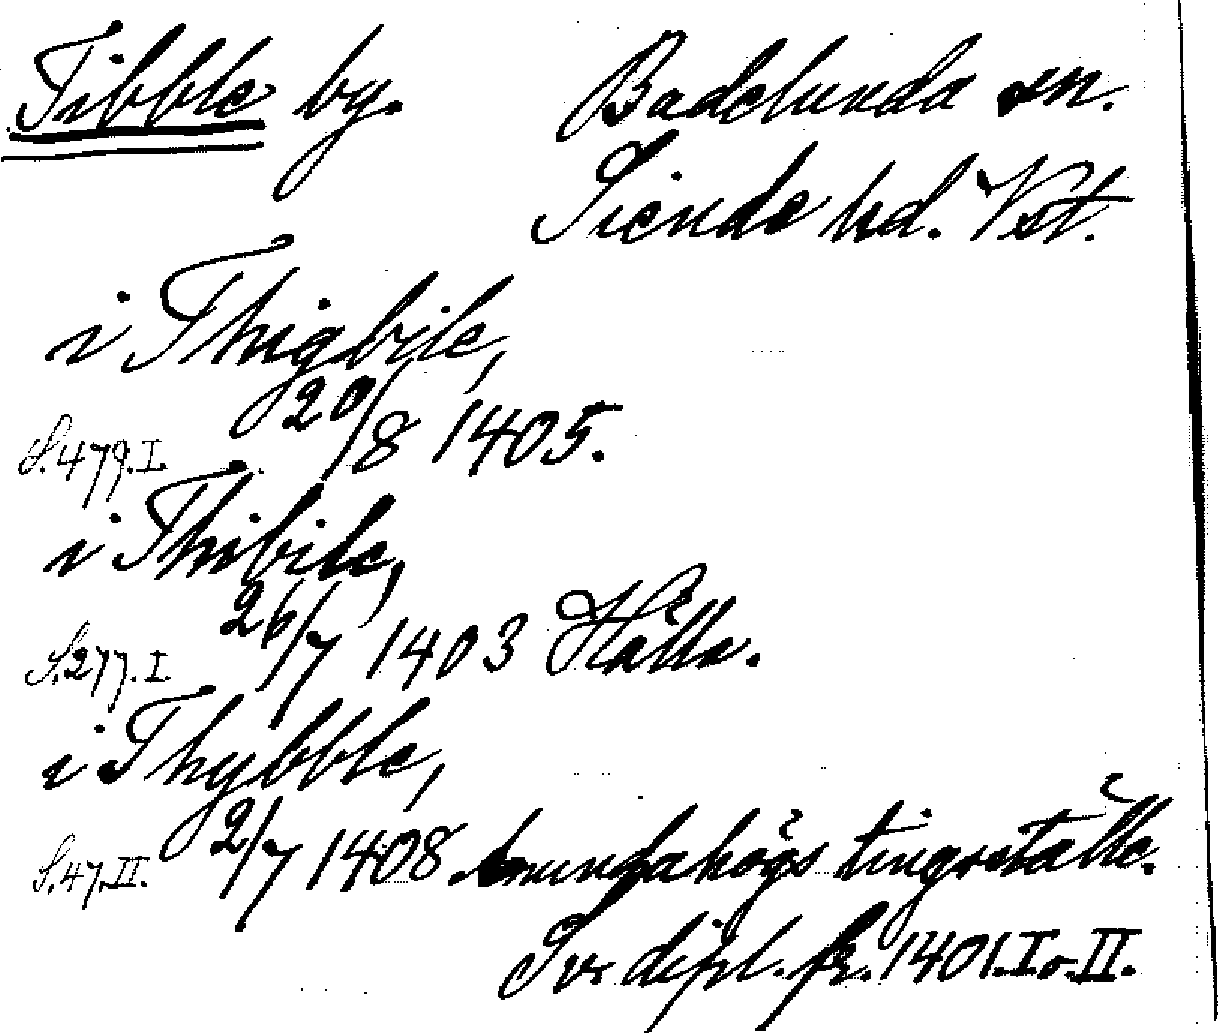 Tibble by. Badelunda sn.
Siende hd. Vst.
i Thigbile,
S. 479. I. 20/8 1405.
i Thibile,
S. 277. I. 26/7 1403 Hälla.
i Thybble,
S. 47. II. 2/7 1408 Amundahögs tingställe.
Sv. dipl. fr. 1401. I o. II.